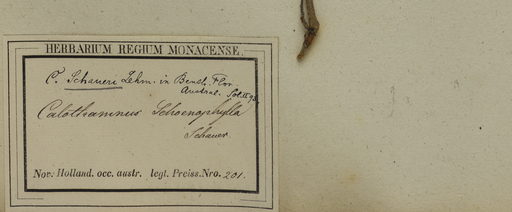 HERBARIUM REGIUM MONACENSE.
C. Schaueri Lehm. in Benth. Flor.
Austral. Vol. III 98.
Calothamnus Schoenophylla
Schauer
Nov. Holland. occ. austr. legt. Preiss. Nro. 201.